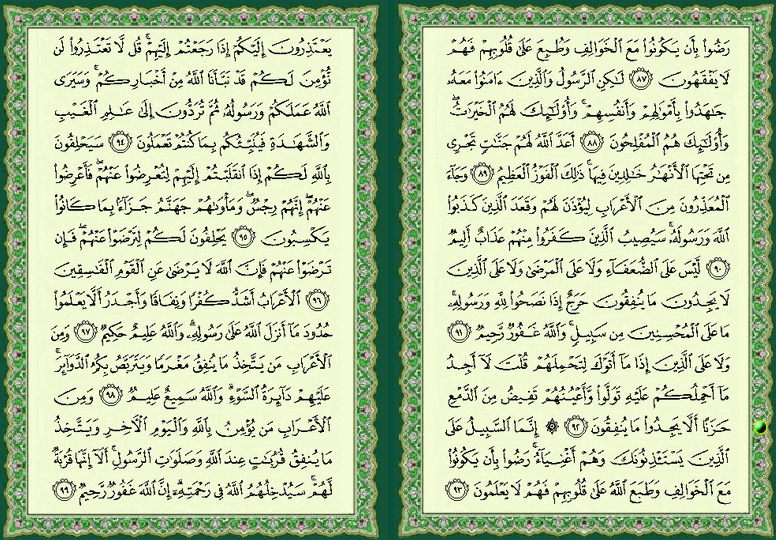 رَضُوا۟ بِأَن يَكُونُوا۟ مَعَ ٱلْخَوَالِفِ وَطُبِعَ عَلَىٰ قُلُوبِهِمْ فَهُمْ
لَا يَفْقَهُونَ ٨٧ لَـٰكِنِ ٱلرَّسُولُ وَٱلَّذِينَ ءَامَنُوا۟ مَعَهُۥ
جَـٰهَدُوا۟ بِأَمْوَٰلِهِمْ وَأَنفُسِهِمْ ۚ وَأُو۟لَـٰٓئِكَ لَهُمُ ٱلْخَيْرَٰتُ ۖ
وَأُو۟لَـٰٓئِكَ هُمُ ٱلْمُفْلِحُونَ ٨٨ أَعَدَّ ٱللَّهُ لَهُمْ جَنَّـٰتٍ تَجْرِى
مِن تَحْتِهَا ٱلْأَنْهَـٰرُ خَـٰلِدِينَ فِيهَا ۚ ذَٰلِكَ ٱلْفَوْزُ ٱلْعَظِيمُ ٨٩ وَجَآءَ
ٱلْمُعَذِّرُونَ مِنَ ٱلْأَعْرَابِ لِيُؤْذَنَ لَهُمْ وَقَعَدَ ٱلَّذِينَ كَذَبُوا۟
ٱللَّهَ وَرَسُولَهُۥ ۚ سَيُصِيبُ ٱلَّذِينَ كَفَرُوا۟ مِنْهُمْ عَذَابٌ أَلِيمٌ
٩٠ لَّيْسَ عَلَى ٱلضُّعَفَآءِ وَلَا عَلَى ٱلْمَرْضَىٰ وَلَا عَلَى ٱلَّذِينَ
لَا يَجِدُونَ مَا يُنفِقُونَ حَرَجٌ إِذَا نَصَحُوا۟ لِلَّهِ وَرَسُولِهِۦ ۚ
مَا عَلَى ٱلْمُحْسِنِينَ مِن سَبِيلٍ ۚ وَٱللَّهُ غَفُورٌ رَّحِيمٌ ٩١
وَلَا عَلَى ٱلَّذِينَ إِذَا مَآ أَتَوْكَ لِتَحْمِلَهُمْ قُلْتَ لَآ أَجِدُ
مَآ أَحْمِلُكُمْ عَلَيْهِ تَوَلَّوا۟ وَّأَعْيُنُهُمْ تَفِيضُ مِنَ ٱلدَّمْعِ
حَزَنًا أَلَّا يَجِدُوا۟ مَا يُنفِقُونَ ٩٢ ۞ إِنَّمَا ٱلسَّبِيلُ عَلَى
ٱلَّذِينَ يَسْتَـْٔذِنُونَكَ وَهُمْ أَغْنِيَآءُ ۚ رَضُوا۟ بِأَن يَكُونُوا۟
مَعَ ٱلْخَوَالِفِ وَطَبَعَ ٱللَّهُ عَلَىٰ قُلُوبِهِمْ فَهُمْ لَا يَعْلَمُونَ ٩٣
يَعْتَذِرُونَ إِلَيْكُمْ إِذَا رَجَعْتُمْ إِلَيْهِمْ ۚ قُل لَّا تَعْتَذِرُوا۟ لَن
نُّؤْمِنَ لَكُمْ قَدْ نَبَّأَنَا ٱللَّهُ مِنْ أَخْبَارِكُمْ ۚ وَسَيَرَى
ٱللَّهُ عَمَلَكُمْ وَرَسُولُهُۥ ثُمَّ تُرَدُّونَ إِلَىٰ عَـٰلِمِ ٱلْغَيْبِ
وَٱلشَّهَـٰدَةِ فَيُنَبِّئُكُم بِمَا كُنتُمْ تَعْمَلُونَ ٩٤ سَيَحْلِفُونَ
بِٱللَّهِ لَكُمْ إِذَا ٱنقَلَبْتُمْ إِلَيْهِمْ لِتُعْرِضُوا۟ عَنْهُمْ ۖ فَأَعْرِضُوا۟
عَنْهُمْ ۖ إِنَّهُمْ رِجْسٌ ۖ وَمَأْوَىٰهُمْ جَهَنَّمُ جَزَآءًۢ بِمَا كَانُوا۟
يَكْسِبُونَ ٩٥ يَحْلِفُونَ لَكُمْ لِتَرْضَوْا۟ عَنْهُمْ ۖ فَإِن
تَرْضَوْا۟ عَنْهُمْ فَإِنَّ ٱللَّهَ لَا يَرْضَىٰ عَنِ ٱلْقَوْمِ ٱلْفَـٰسِقِينَ
٩٦ ٱلْأَعْرَابُ أَشَدُّ كُفْرًا وَنِفَاقًا وَأَجْدَرُ أَلَّا يَعْلَمُوا۟
حُدُودَ مَآ أَنزَلَ ٱللَّهُ عَلَىٰ رَسُولِهِۦ ۗ وَٱللَّهُ عَلِيمٌ حَكِيمٌ ٩٧ وَمِنَ
ٱلْأَعْرَابِ مَن يَتَّخِذُ مَا يُنفِقُ مَغْرَمًا وَيَتَرَبَّصُ بِكُمُ ٱلدَّوَآئِرَ ۚ
عَلَيْهِمْ دَآئِرَةُ ٱلسَّوْءِ ۗ وَٱللَّهُ سَمِيعٌ عَلِيمٌ ٩٨ وَمِنَ
ٱلْأَعْرَابِ مَن يُؤْمِنُ بِٱللَّهِ وَٱلْيَوْمِ ٱلْـَٔاخِرِ وَيَتَّخِذُ
مَا يُنفِقُ قُرُبَـٰتٍ عِندَ ٱللَّهِ وَصَلَوَٰتِ ٱلرَّسُولِ ۚ أَلَآ إِنَّهَا قُرْبَةٌ
لَّهُمْ ۚ سَيُدْخِلُهُمُ ٱللَّهُ فِى رَحْمَتِهِۦٓ ۗ إِنَّ ٱللَّهَ غَفُورٌ رَّحِيمٌ ٩٩